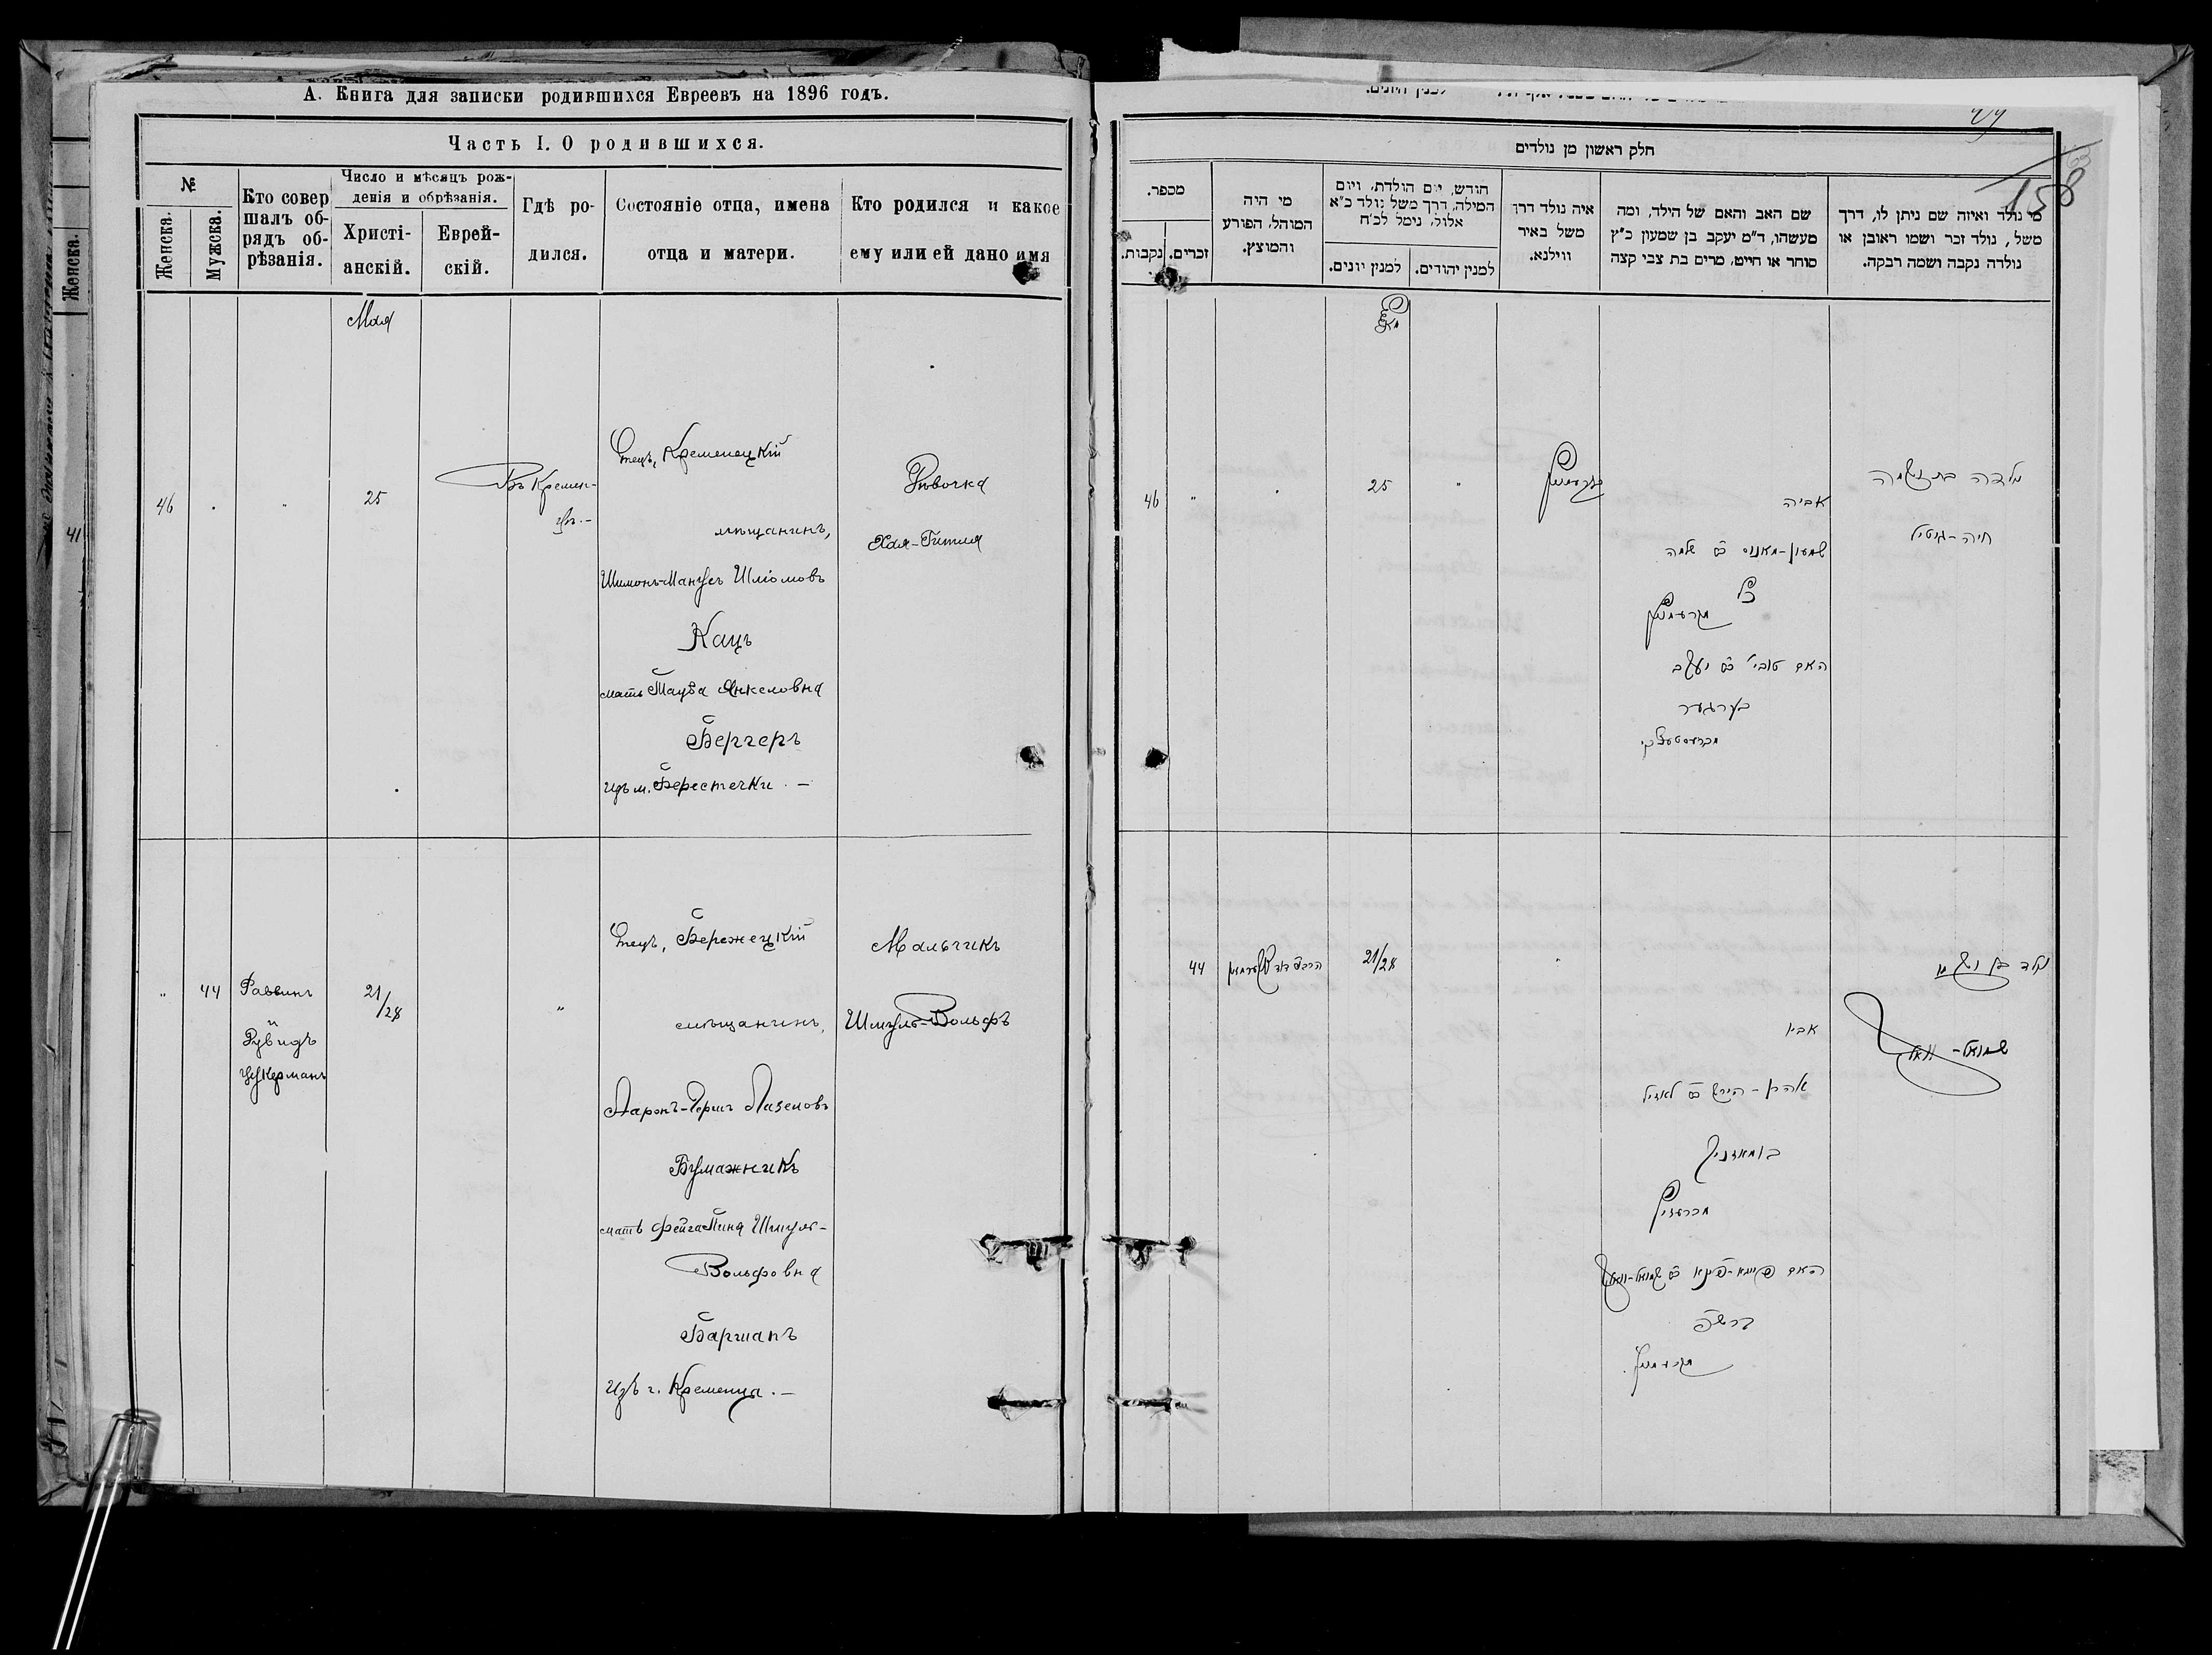 А. Книга для записки родившихся Евреевъ на 1896 годъ.
Часть I. О родившихся.
№
Женска.
Мужска.
Кто совер
шалъ об-
рядъ об-
рѣзанія.
Число и мѣсяцъ рож-
денія и обрѣзанія.
Христі-
анскій.
Еврей-
скій.
Гдѣ ро-
дился.
Состояніе отца, имена
отца и матери.
Кто родился и какое
ему или ей дано имя
Женска.
41
Мая
46
25
Въ Кремен-
цѣ.-
Отецъ, Кременецкій
мѣщанинъ,
Шимонъ-Манусъ Шліомовъ
Кацъ
мать Тауба Янкеловна
Бергеръ
изъ м. Берестечки. —
Дѣвочка
Хая-Гитля
"
44
Раввинъ
Дувидъ
Цукерманъ
21/28
"
Отецъ, Бережецкій
мѣщанинъ,
Ааронъ-Гершъ Лазеловъ
Бумажникъ
мать Фейга Пина Шмуль-
Вольфовна
Баршапъ
изъ г. Кременца. —
Мальчикъ
Шмуль-Вольфъ
158
חלק ראשון מן נולדים
מספר.
נקבות.
זכרים.
מי היה
המוהל, הפורע
והמוצץ.
חודש, יום הולדת, ויום
המילה, דרך משל נולד כ"א
אלול, נימל לכ"ח
למנין יונים.
למנין יהודים.
איה נולד דרך
משל באיר
ווילנא.
שם האב והאם של הילד, ומה
מעשהו, ד"מ יעקב בן שמעון כ"ץ
סוחר או חייט, מרים בת צבי קצה
מי נולד ואיזה שם ניתן לו, דרך
משל, נולד זכר ושמו ראובן או
נולדה נקבה ושמה רבקה.
מאי
46
"
25
"
קרעמניץ
אביה
שמעון-מאנוס ב"ר שלמה
כ"ץ
מקרעמניץ
האם טובי' ב"ר יעקב
בערגער
מברעסטעצקי
נולדה בת ושמה
חיה-גיטיל
44
21/28
"
אביו
אהרן-הירש ב"ר לאזיל
בומאזניק
האם פייגא-פינא ב"ר שמואל-וואלף
ברש"פ
מקרעמניץ
נולד בן ושמו
שמואל-וואלף